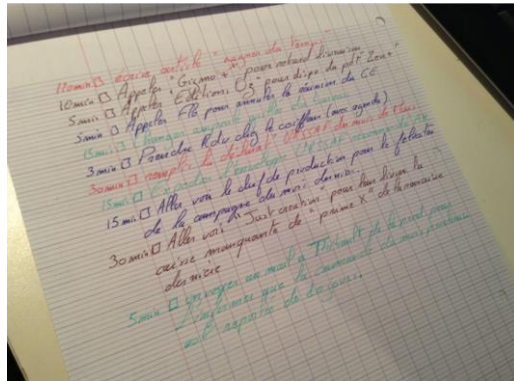 110min □ écrire article "gagner du temps"
10min □ Appeler "Gizmo +" pour retard livraison
5min □ Appeler Editions Oz pour dispo du pdt "Zen +"
5min □ Appeler Flo pour annuler la réunion du CE
15min □ Changer ampoule
3min □ Prendre Rdv chez le coiffeur (avec agenda)
30min □ remplir le déclarat° URSSAF du mois de
15min □ Expédier l'enveloppe URSSAF
15min □ Aller voir le chef de production pour le féliciter
de la campagne du mois dernier.
30min □ Aller voir "Just créations" pour leur livrer la
caisse manquante de "prime X" de la semaine
dernière
5min □ envoyer un mail à Thibault pour
l'informer que la commande du mois prochain
est de